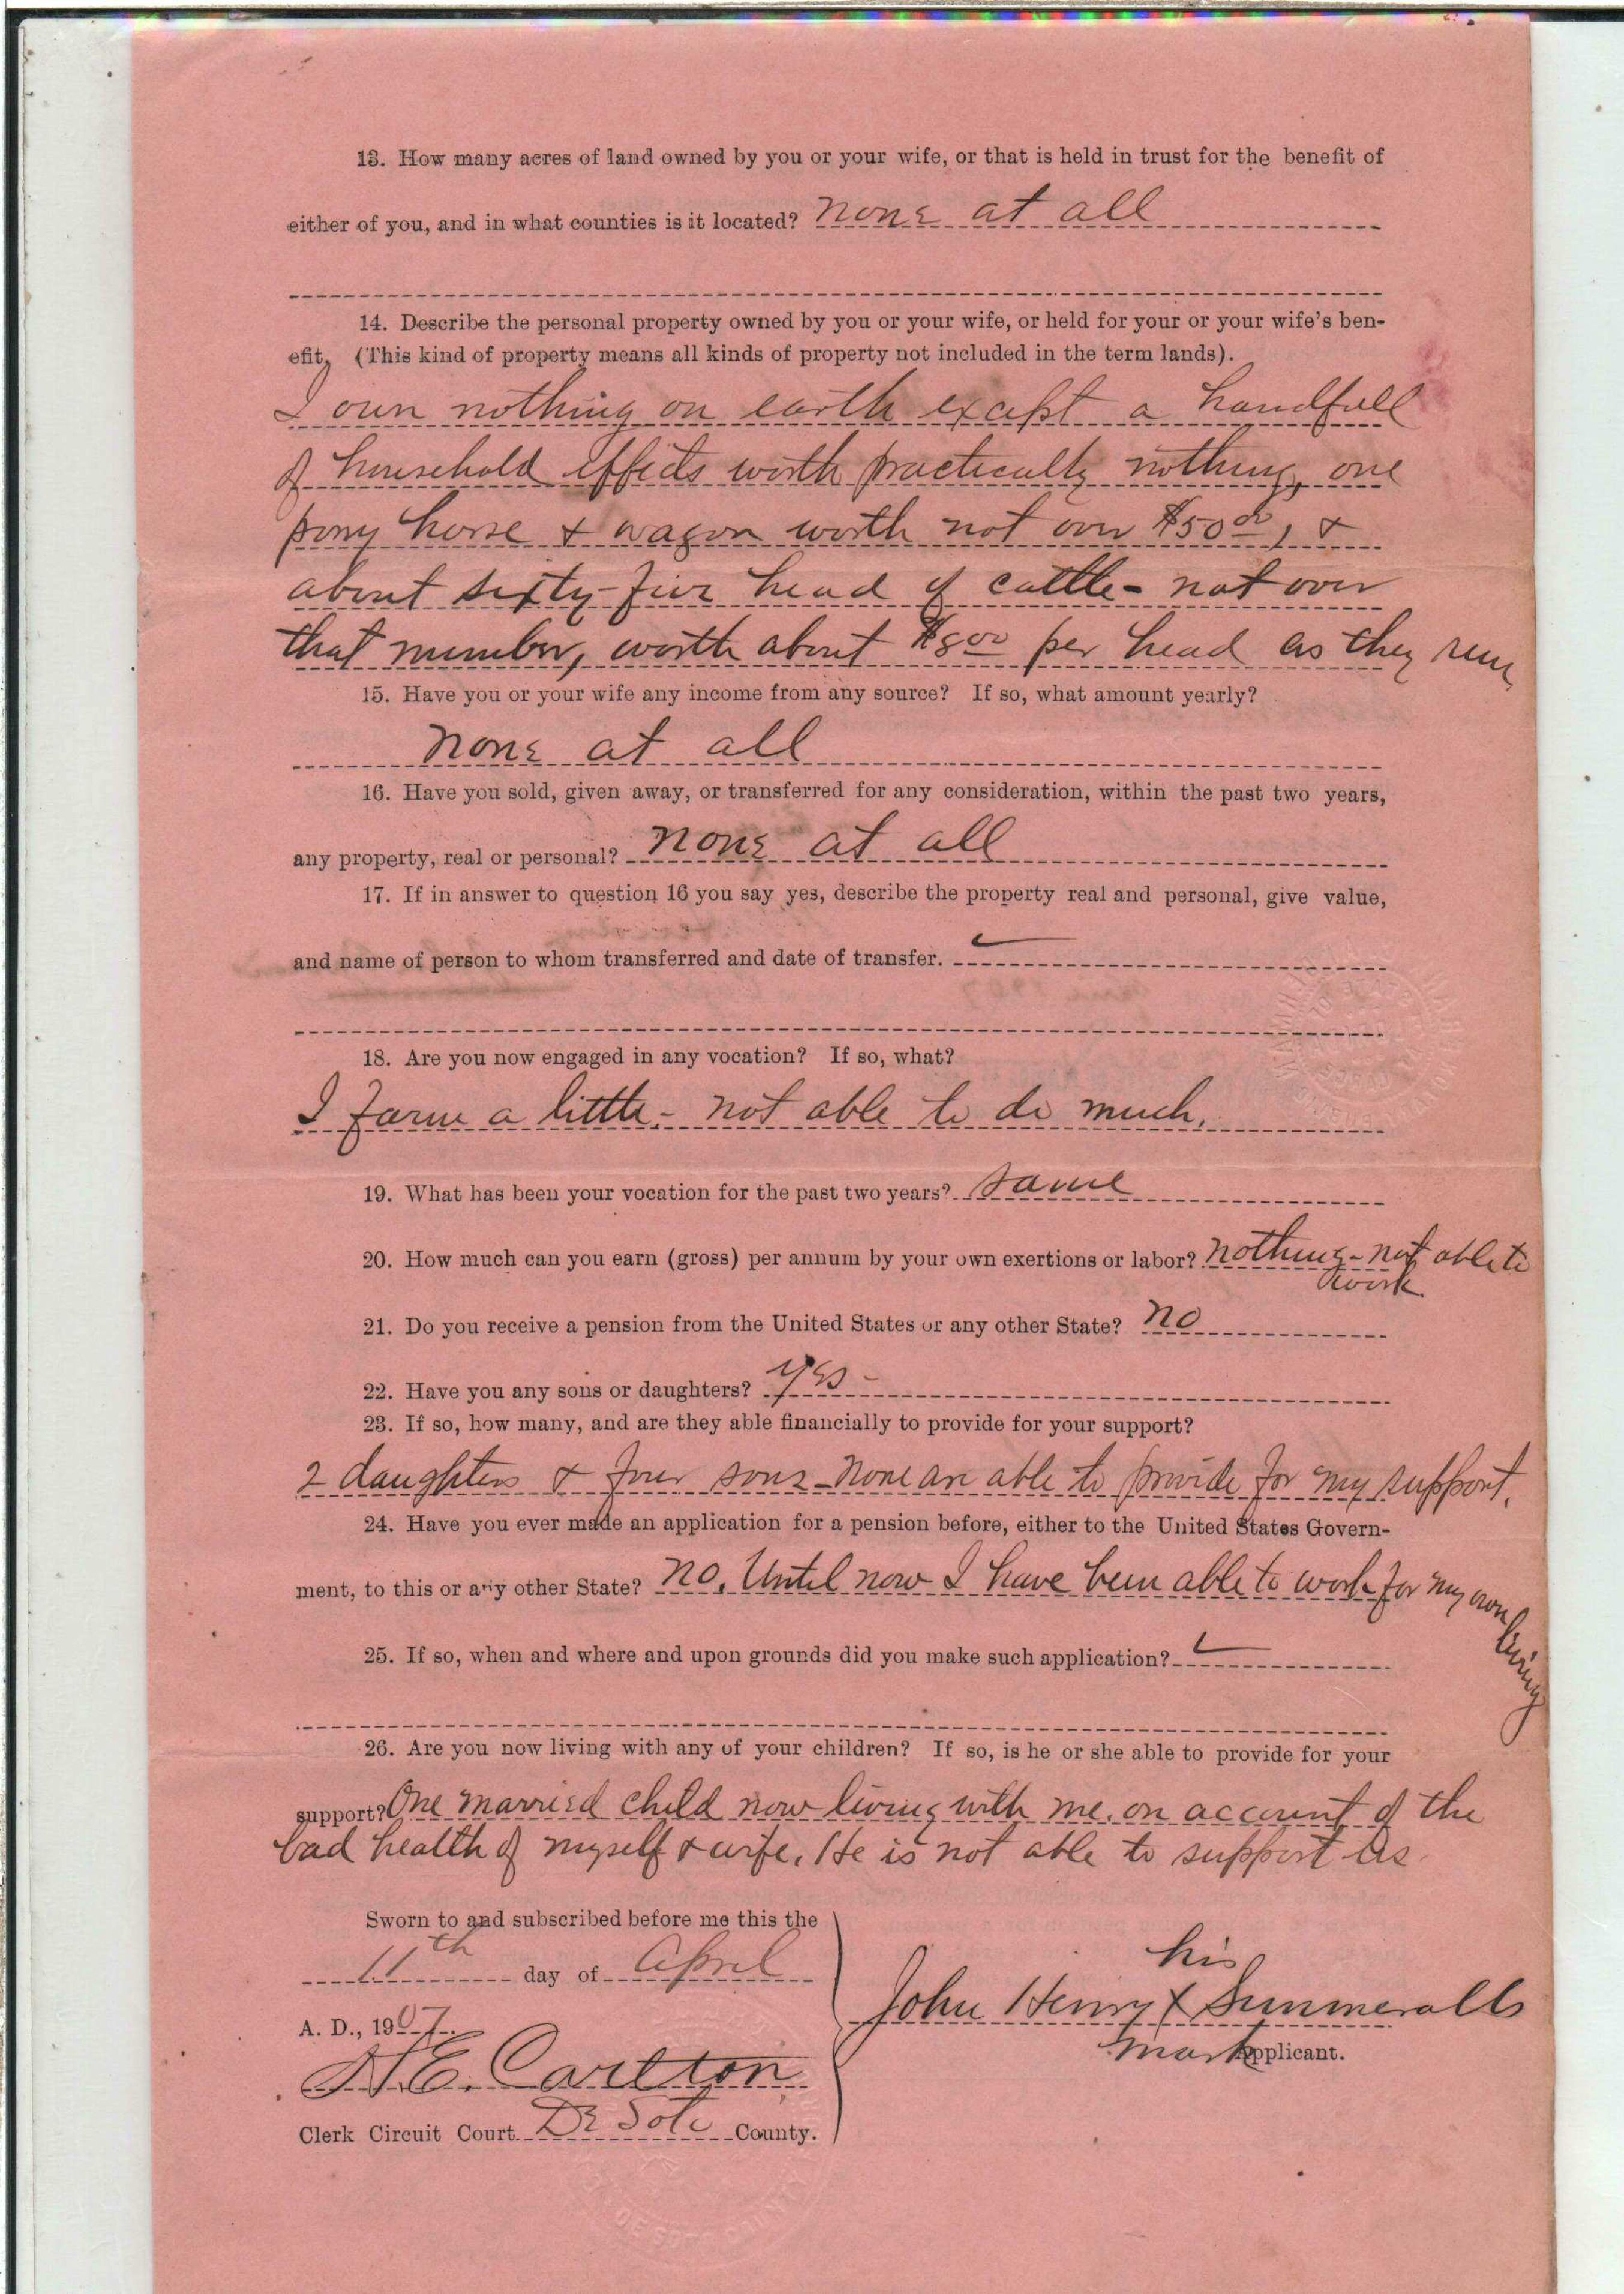 13. How many acres of land owned by you or your wife, or that is held in trust for the benefit of
either of you, and in what counties is it located? none at all
14. Describe the personal property owned by you or your wife, or held for your or your wife's ben-
efit, (This kind of property means all kinds of property not included in the term lands).
I own nothing on earth except a handfull
of household effects worth practically nothing, one
pony horse & wagon worth not over $50 00, &
about sixty-five head of cattle - not over
that number, worth about $8 00 per head as they run,
15. Have you or your wife any income from any source? If so, what amount yearly?
none at all
16. Have you sold, given away, or transferred for any consideration, within the past two years,
any property, real or personal? none at all
17. If in answer to question 16 you say yes, describe the property real and personal, give value,
and name of person to whom transferred and date of transfer.
18. Are you now engaged in any vocation? If so, what?
I farm a little - not able to do much.
19. What has been your vocation for the past two years? same
20. How much can you earn (gross) per annum by your own exertions or labor? nothing - not able to
work.
21. Do you receive a pension from the United States or any other State? no
22. Have you any sons or daughters? yes -
23. If so, how many, and are they able financially to provide for your support?
2 daughters & four sons - None are able to provide for my support.
24. Have you ever made an application for a pension before, either to the United States Govern-
ment, to this or any other State? no. Until now I have been able to work for my own living
25. If so, when and where and upon grounds did you make such application?
26. Are you now living with any of your children? If so, is he or she able to provide for your
support? One married child now living with me, on account of the
bad health of myself & wife. He is not able to support us.
Sworn to and subscribed before me this the
11th day of April
A. D., 1907
his
John Henry X Summeralls
mark Applicant.
A. E. Carlton
Clerk Circuit Court De Soto County.